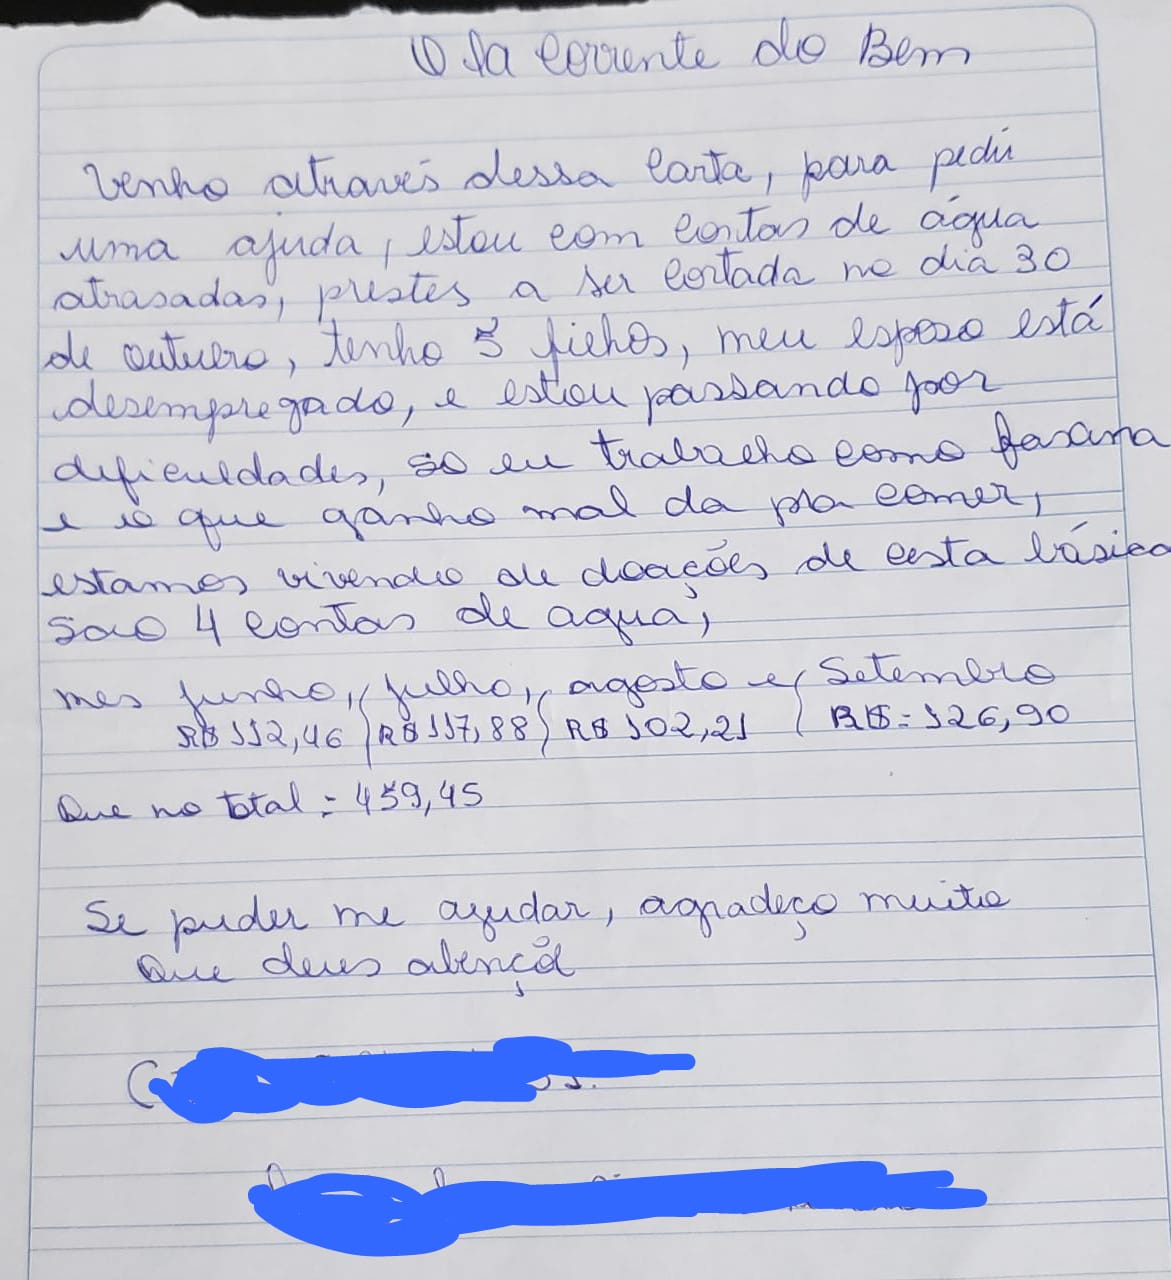 Ola Corrente do Bem
Venho através dessa carta, para pedir
uma ajuda, estou com contas de água
atrasadas, prestes a ser cortada no dia 30
de outubro, tenho 5 filhos, meu esposo está
desempregado, e estou passando por
dificuldades, so eu trabalho como faxina
e o que ganho mal da pra comer,
estamos vivendo de doações de cesta básica
são 4 contas de agua,
mes junho, julho, agosto e, Setembro
R$ 112,46 R$ 117,88 R$ 102,21 R$ = 126,90
Que no total = 459,45
Se puder me ajudar, agradeço muito
Que deus abençõe